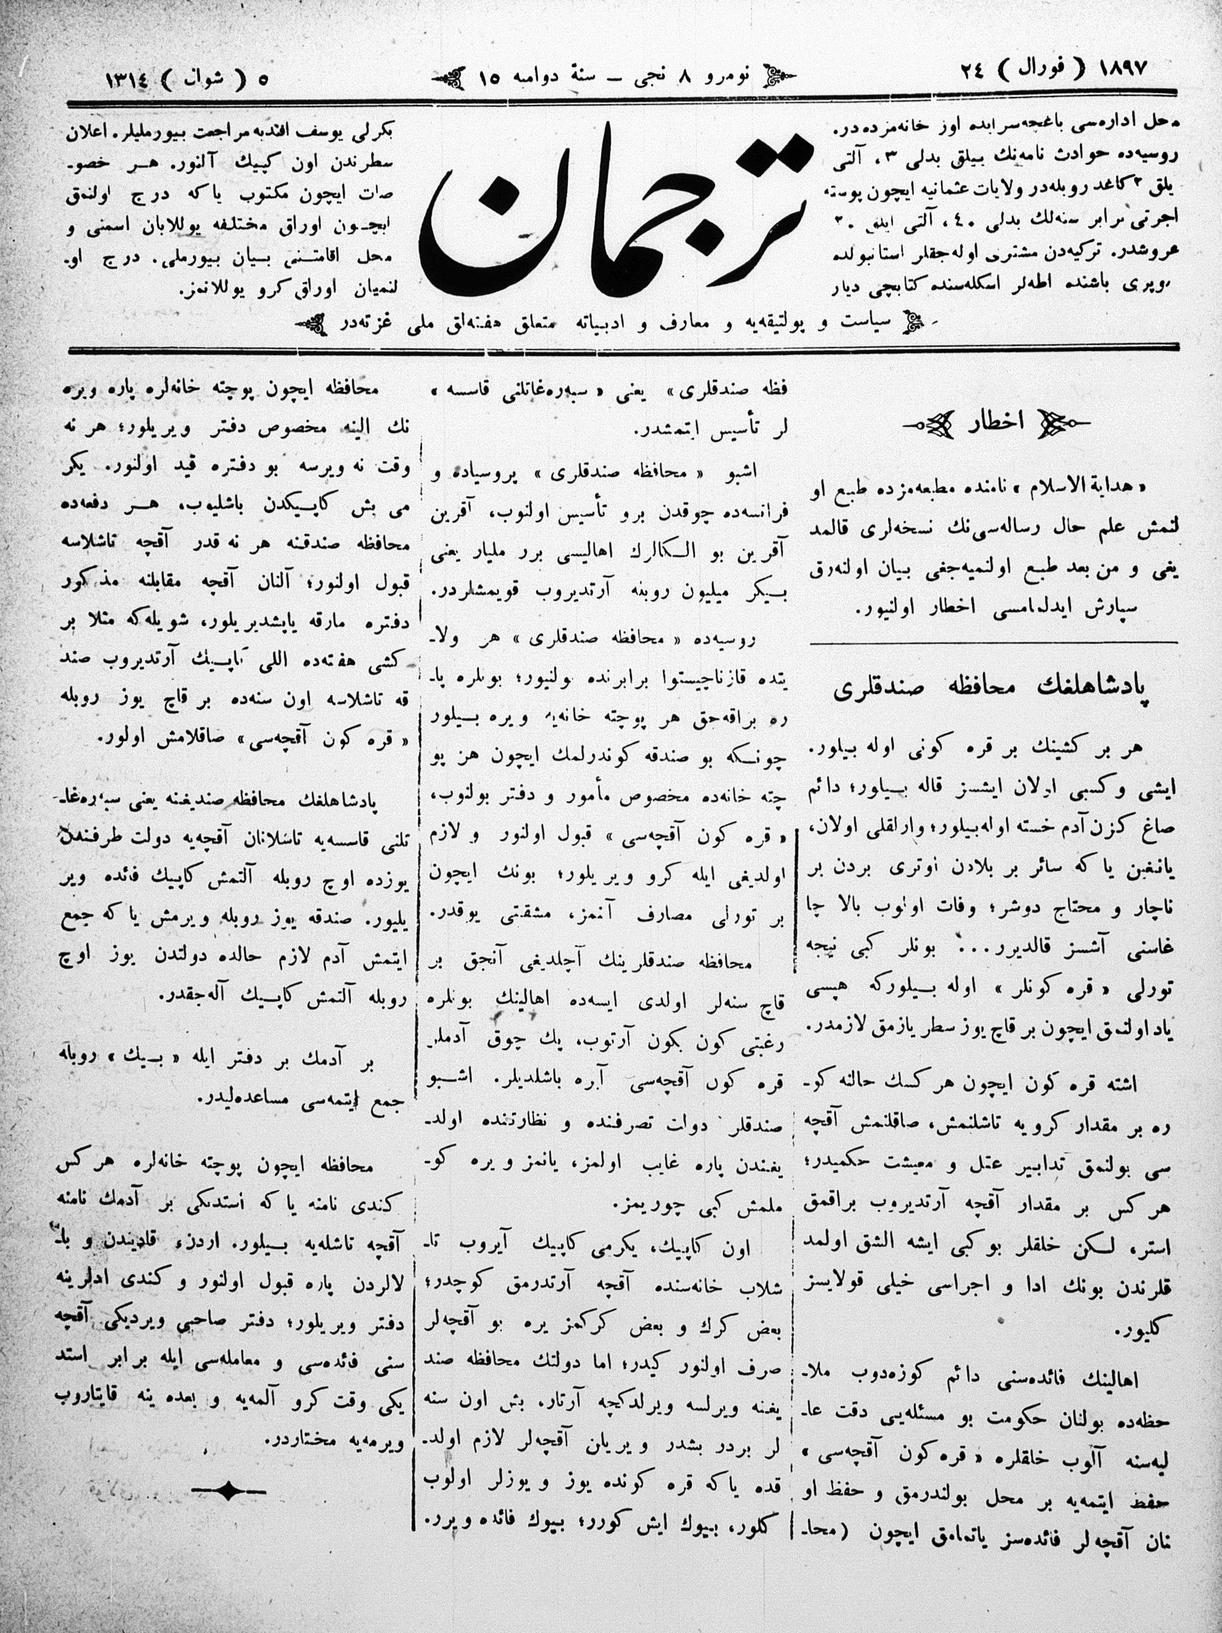 ١٨٩٧ ( فورال ) ٢٤
نومرو ٨ نجی – سنۀ دوامیه ١٥
٥ ( شوال ) ١٣١٤
محل اداره‌سی باغچه‌سرایده اوز خانه‌مزده‌در.
روسیه‌ده حوادث نامه‌نك ییللق بدلی ٣، آلتی
یلق ٢ كاغد روبله‌در ولایات عثمانیه ایچون پوسته
اجرتی برابر سنه‌لك بدلی ٤٠، آلتی ایلق ٢٠
غروشدر. تركیه‌دن مشتری اوله‌جقلر استانبولده
باشنده اطه‌لر اسكله‌سنده كتابچی دیار
ترجمان
بكرلی یوسف افندیه مراجعت بیورملیلر. اعلان
سطرندن اون كپیك آلنور. هــر خصو‌ـ
صات ایچون مكتوب یاكه درج اولنمق
ایچــون اوراق مختلفه یوللایان اسمنی و
محل اقامتــنی بــیان بیورملی. درج او‌ـ
لنمیان اوراق كرو یوللانمز.
سیاست و پولتیقه‌یه و معارف و ادبیاته متعلق هفته‌لق ملی غزته‌در
اخطار
« هدایة الاسلام » نامنده مطبعه‌مزده طبع او
لنمش علم حال رساله‌سی‌نك نسخه‌لری قالمد
یغی و من بعد طبع اولنمیه‌جغی بیان اولنه‌رق
سپارش ایدلمامسی اخطار اولنیور.
پادشاهلغك محافظه صندقلری
هر بر كشینك بر قره كونی اوله بیلور.
ایشی و كسبی اولان ایشسز قاله بــیلور؛ دائم
صاغ كزن آدم خسته اوله‌بیلور؛ وارلقلی اولان،
یانغین یا كه سائر بر بلادن اوتری بردن بر
ناچار و محتاج دوشر؛ وفات اولوب بالا چا
غاسنی آشسز قالدیرر... بونلر كبی نیچه
تورلی « قره كونلر » اوله بــیلوركه هپسی
یاد اولنمق ایچون بر قاچ یوز سطر یازمق لازمدر.
اشته قره كون ایچون هر كسك حالنه كو‌ـ
ره بر مقدار كرویه تاشلنمش، صاقلنمش آقچه
سی بولنمق تدابیر عقل و معیشت حكمیدر؛
هر كس بر مقدار آقچه آرتدیروب براقمق
استر، لــكن خلقلر بو كبی ایشه الشق اولمد
قلرندن بونك ادا و اجراسی خیلی قولایسز
كلیور.
اهالینك فائده‌سنی دائم كوزه‌دوب ملا‌ـ
حظه‌ده بولنان حكومت بو مسئله‌یی دقت عا‌ـ
لیه‌سنه آلوب خلقلره « قره كون آقچه‌سی »
حفظ ایتمه‌یه بر محل بولندرمق و حفظ او
نان آقچه‌لر فائده‌سز یاتمامق ایچون (محا‌ـ
فظه صندقلری» یعنی « سبه‌ره‌غاتلنی قاسسه »
لر تأسیس ایتمشدر.
اشبو « محافظه صندقلری » پروسیاده و
فرانسه‌ده چوقدن برو تأسیس اولنوب، آقرین
آقرین بو الــكالرك اهالیسی برر ملیار یعنی
بــیكر میلیون روبله آرتدیروب قویمشلردر.
روسیه‌ده « محافظه صندقلری » هر ولا‌ـ
یتده قازناچیستوا برابرنده بولنیور؛ بونلره پا‌ـ
ره براقه‌جق هر پوچته خانه‌یه ویره بــیلور
چونــكه بو صندقه كوندرلمك ایچون هر پو
چته خانه‌ده مخصوص مأمور و دفتر بولنوب،
« قره كون آقچه‌سی » قبول اولنور و لازم
اولدیغی ایله كرو ویریلور؛ بونك ایچون
بر تورلی مصارف آنمز، مشقتی یوقدر.
محافظه صندقلرینك آچلدیغی آنجق بر
قاچ سنه‌لر اولدی ایسه‌ده اهالینك بونلره
رغبتی كون بكون آرتوب، پك چوق آدملر
قره كون آقچه‌سی آیره باشلدیلر. اشــبو
صندقلر دولت تصرفنده و نظارتنده اولد‌ـ
یغندن پاره غایب اولمز، یانمز و یره كو‌ـ
ملمش كبی چوریمز.
اون كاپیك، یكرمی كاپیك آیروب تا‌ـ
شلاب خانه‌سنده آقچه آرتدرمق كوچدر؛
بعض كرك و بعض كركمز یره بو آقچه‌لر
صرف اولنور كیدر؛ اما دولتك محافظه صند
یغنه ویرلسه ویرلدكچه آرتار، بش اون سنه
لر بردر بشدر ویریلن آقچه‌لر لازم اولد‌ـ
قده یاكه قره كونده یوز و یوزلر اولوب
كلور، بیوك ایش كورر؛ بیوك فائده ویرر.
محافظه ایچون پوچته خانه‌لره پاره ویره
نك الینه مخصوص دفتر ویریلور؛ هر نه
وقت نه ویرسه بو دفتره قید اولنور. یكر
می بش كاپــیكدن باشلیوب، هــر دفعه‌ده
محافظه صندقنه هر نه قدر آقچه تاشلاسه
قبول اولنور؛ آلنان آقچه مقابلنه مذكور
دفتره مارقه یاپشدیریلور، شویله‌كه مثلا بر
كشی هفته‌ده اللی كاپــیك آرتدیروب صند
قه تاشلاسه اون سنه‌ده بر قاچ یوز روبله
« قره كون آقچه‌سی» صاقلامش اولور.
پادشاهلغك محافظه صندیغنه یعنی سبه‌ره‌غا‌ـ
تلنی قاسسه‌یه تاشلانان آقچه‌یه دولت طرفندن
یوزده اوچ روبله آلتمش كاپیك فائده ویر
یلیور. صندقه یوز روبله ویرمش یا كه جمع
ایتمش آدم لازم حالده دولتدن یوز اوچ
روبله آلتمش كاپــیك آله‌جقدر.
بر آدمك بر دفتر ایله « بــیك » روبله
جمع ایتمه‌سی مساعده‌لیدر.
محافظه ایچون پوچته خانه‌لره هر كس
كندی نامنه یا كه استدیكی بر آدمك نامنه
آقچه تاشله‌یه بــیلور. اردن، قادیندن و با‌ـ
لالردن پاره قبول اولنور و كندی ادلرینه
دفتر ویریلور؛ دفتر صاحبی ویردیكی آقچه
سنی فائده‌سی و معامله‌سی ایله برابر استد
یكی وقت كرو آلمه‌یه و بعده ینه قایتاروب
ویرمه‌یه مختاردر.